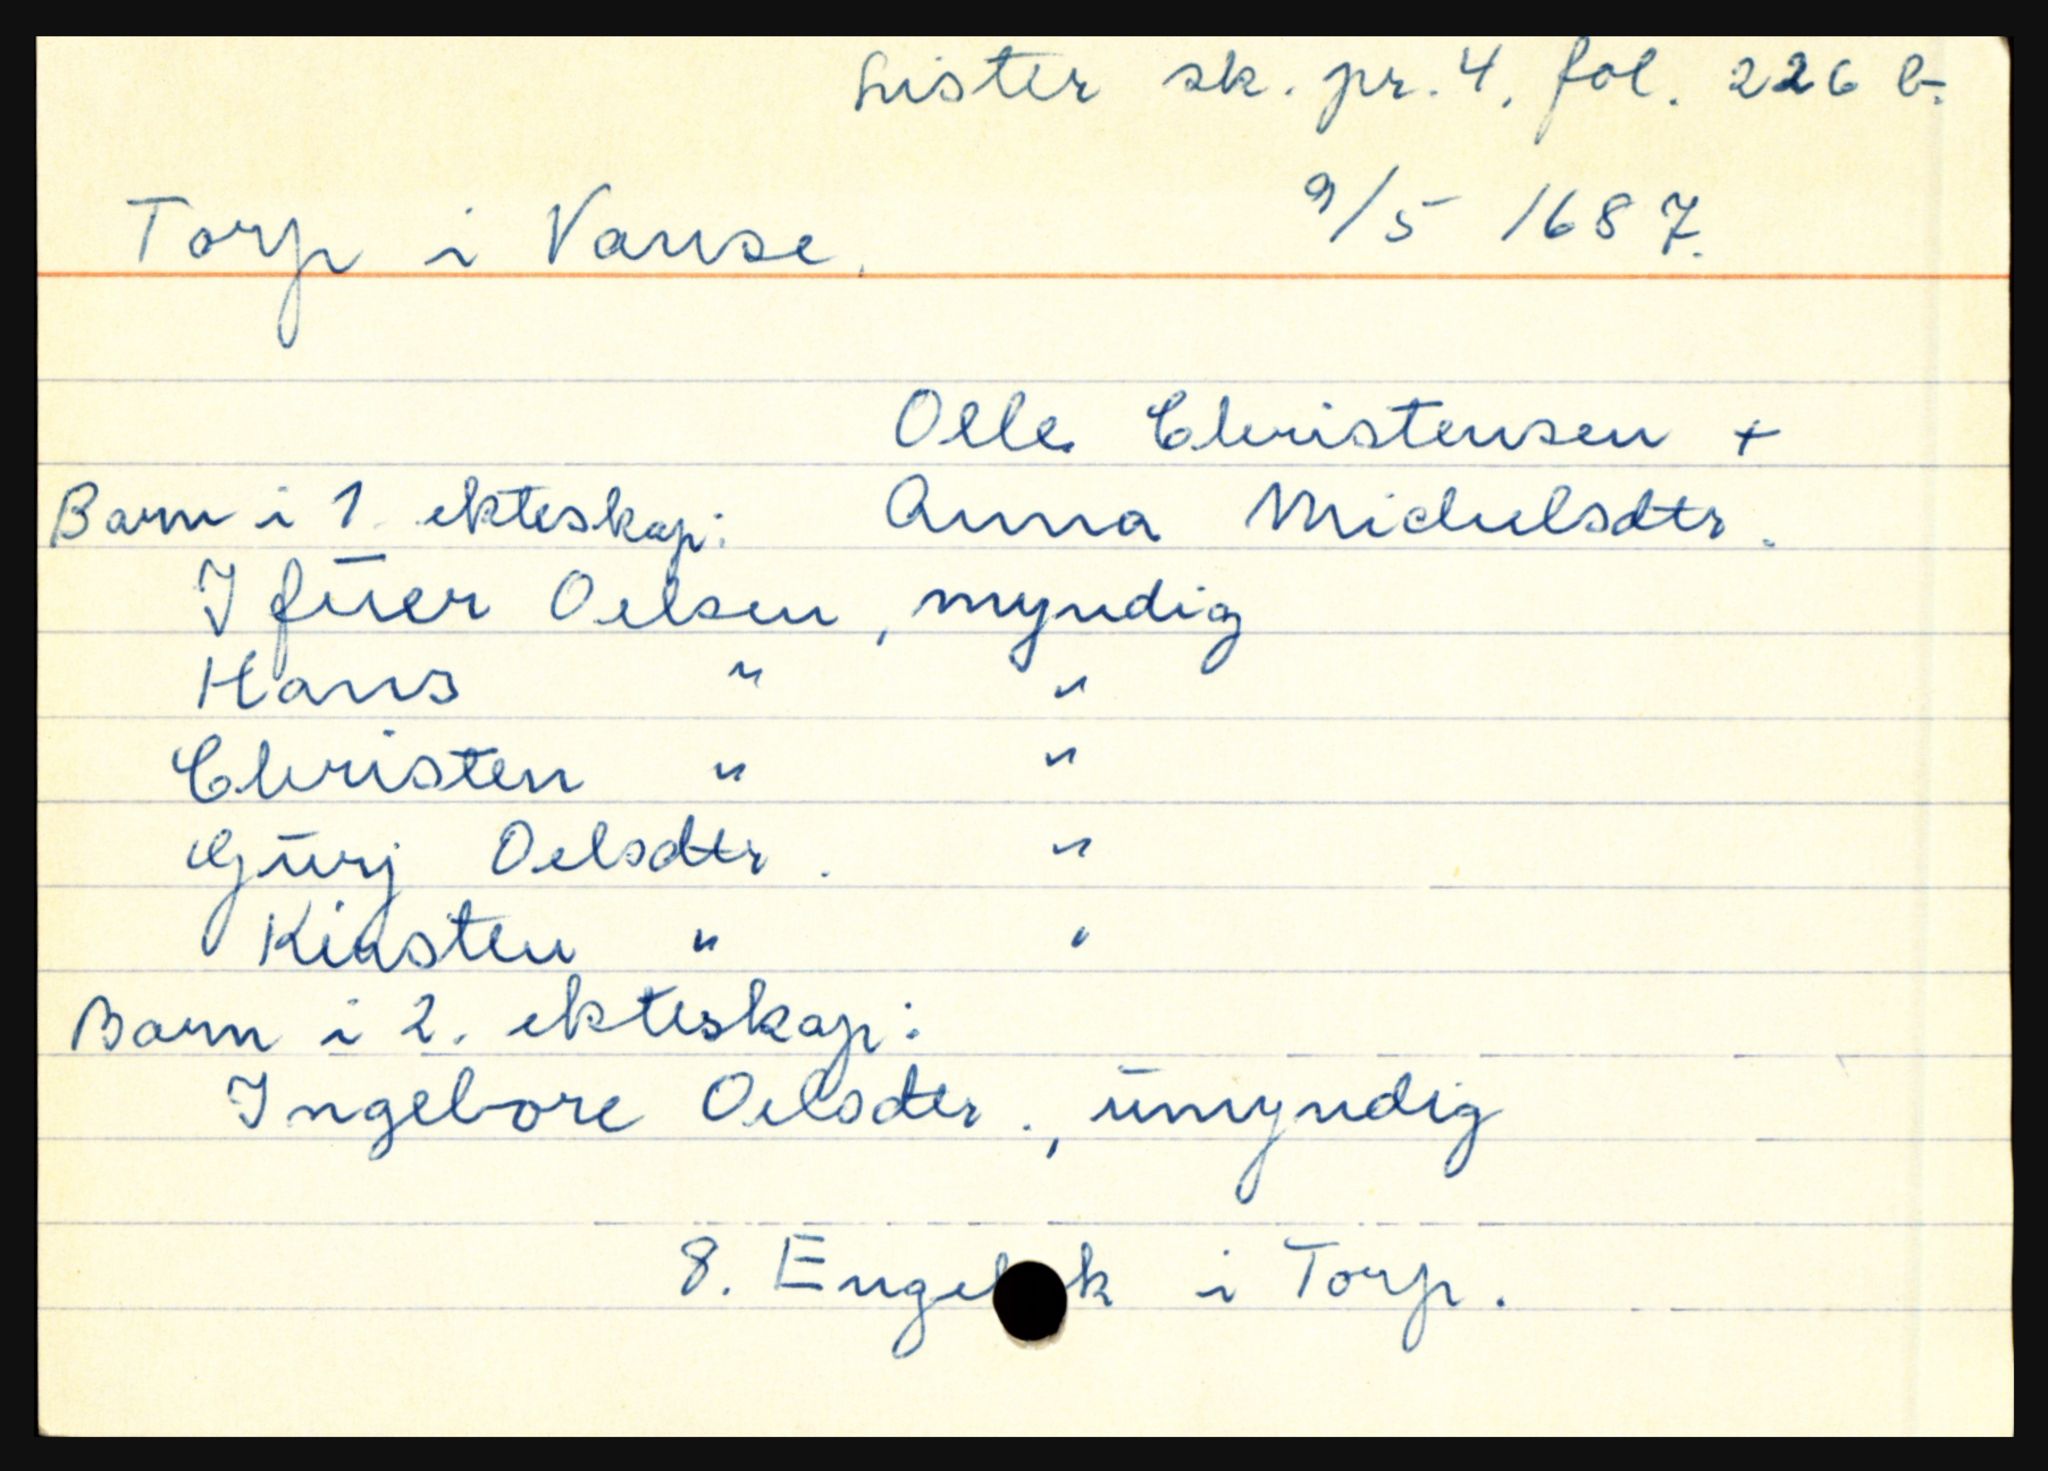 Lister sk. pr. 4. fol. 226 b.
Torp i Vanse. 9/5 1687.
Olle Christensen +
Barn i 1. ekteskap: Anna Michelsdtr.
Ifūer Oelsen, myndig
Hans " "
Christen " "
Gūrj Oelsdtr. "
Kirsten " "
Barn i 2. ekteskap:
Ingebore Oelsdtr., ūmyndig
8. i Torp.